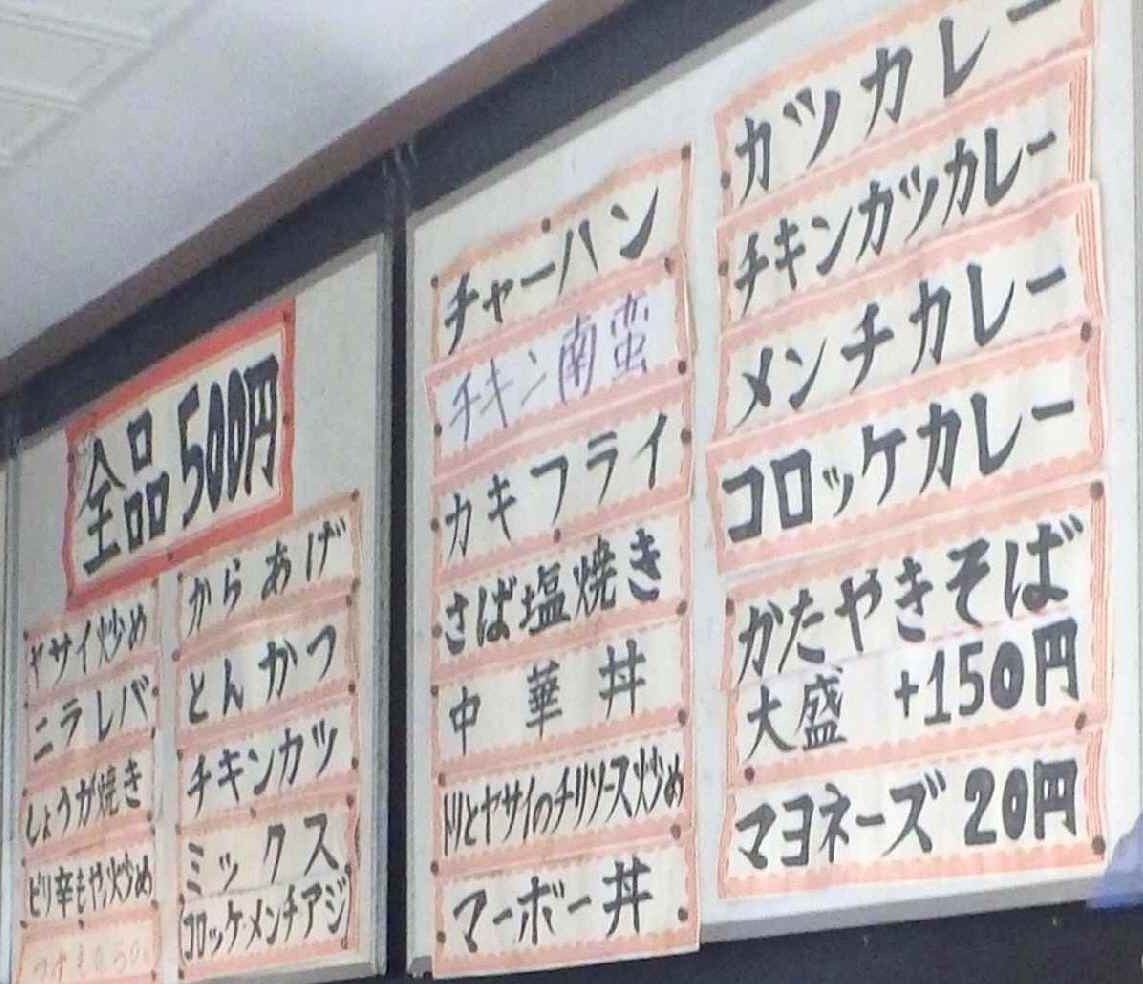 全品500円
ヤサイ炒め
ニラレバ
しょうが焼き
ピリ辛もやし炒め
からあげ
とんかつ
チキンカツ
ミックス
(コロッケ・メンチアジ)
チャーハン
チキン南蛮
カキフライ
さば塩焼き
中華丼
トリとヤサイのチリソース炒め
マーボー丼
カツカレー
チキンカツカレー
メンチカレー
コロッケカレー
かたやきそば
大盛 +150円
マヨネーズ 20円